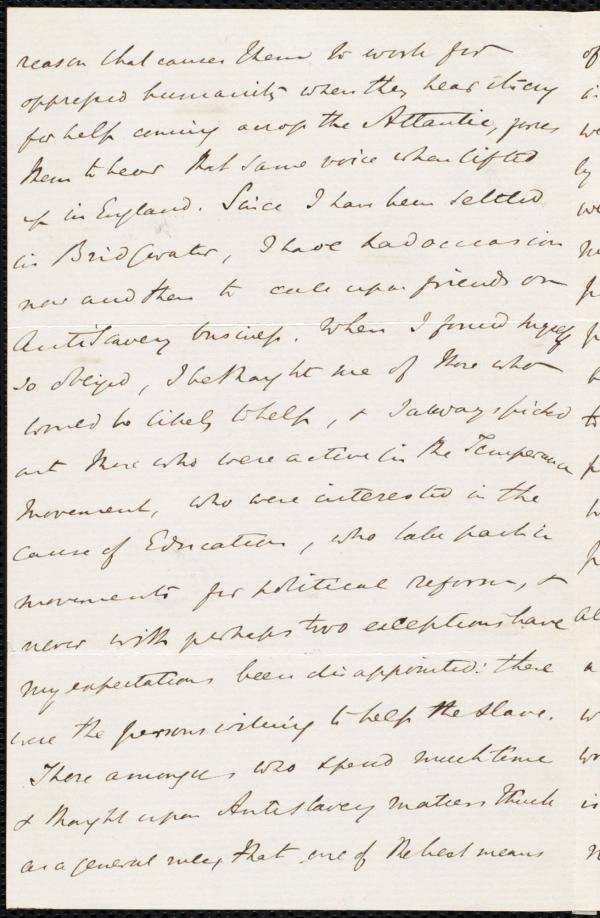 reason that causes them to work for
oppressed humanity when they hear its cry
for help coming across the Atlantic, forces
them to hear that same voice when lifted
up in England. Since I have been settled
in Bridgwater, I have had occasion
now and then to call upon friends on
AntiSlavery business. When I found myself
so obliged, I bethought me of those who
would be likely to help, & I always picked
out those who were active in the Temperance
Movement, who were interested in the
cause of Education, who take part in
movements for political reform, &
never with perhaps two exceptions have
my expectations been disappointed: these
were the persons willing to help the slave.
Those amongst us who spend much time
& thought upon Antislavery matters think
as a general rule, that one of the best means
of
by
we
al
a
is